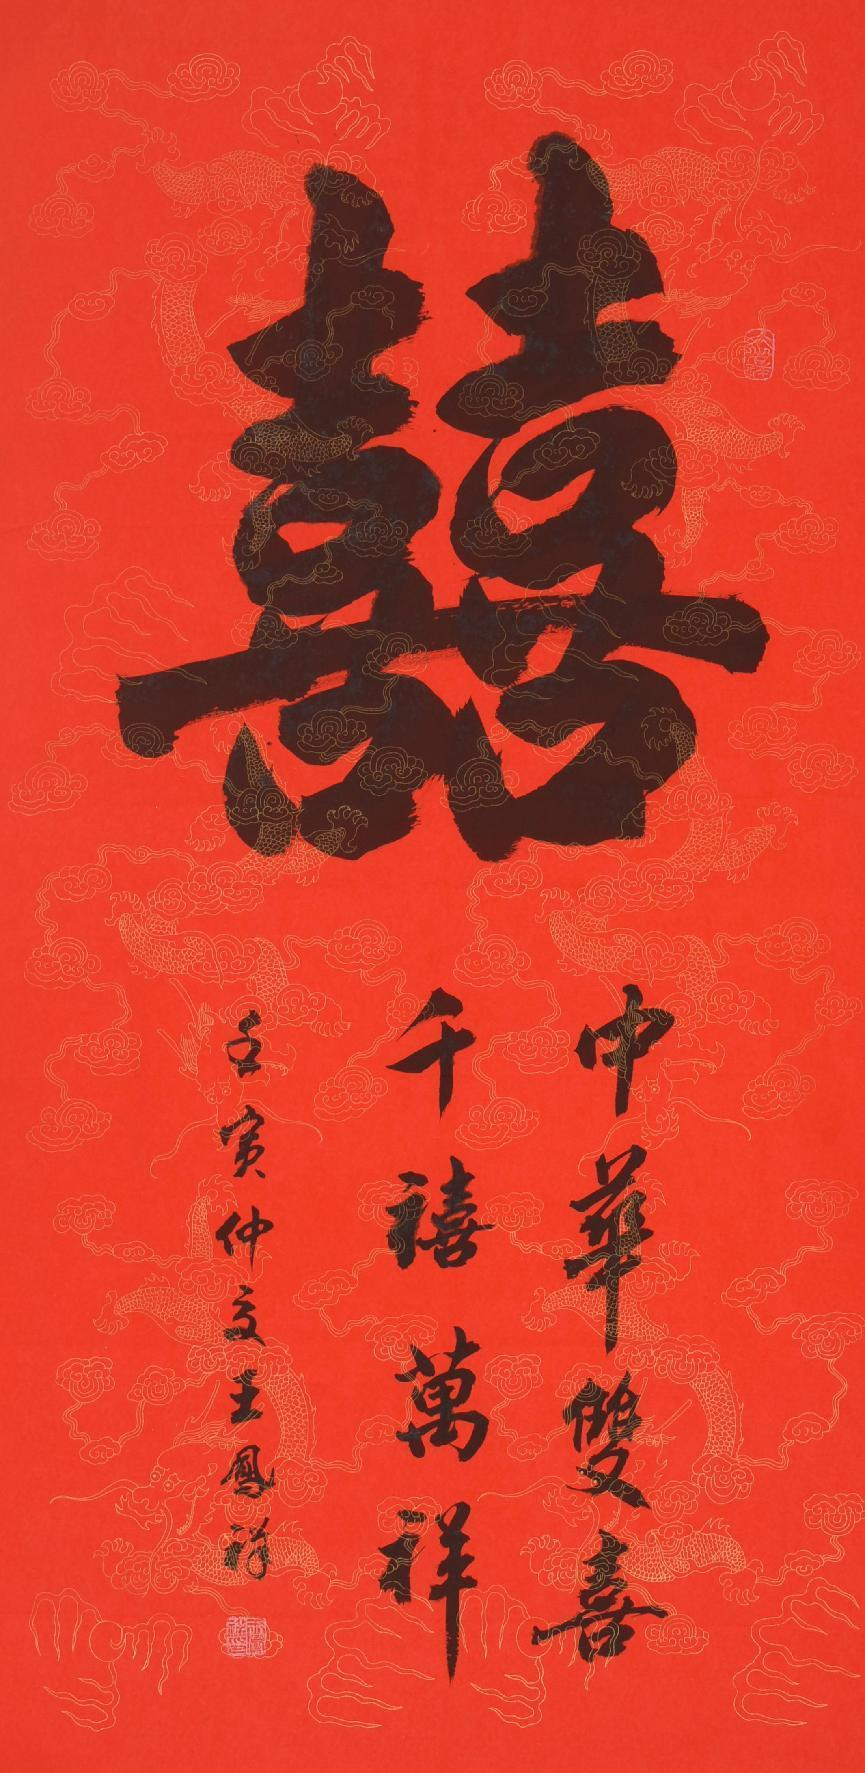 囍
中華雙喜
千禧萬祥
壬寅仲夏王鳳祥